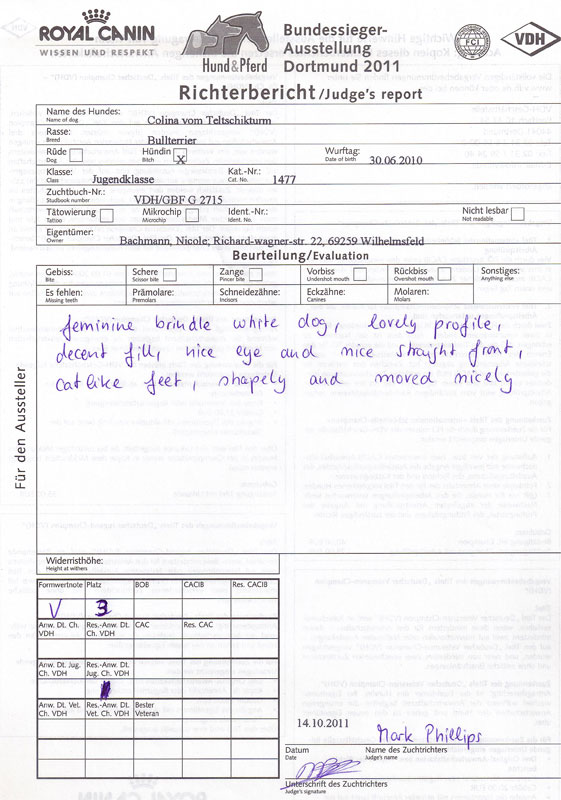 ROYAL CANIN
WISSEN UND RESPEKT
Hund&Pferd
Bundessieger-
Ausstellung
Dortmund 2011
FCI
VDH
Richterbericht/Judge's report
Name des Hundes:
Name of dog
Colina vom Teltschikturm
Rasse:
Breed
Bullterrier
Rüde
Dog
Hündin
Bitch
X
Wurftag:
Date of birth
30.06.2010
Klasse:
Class
Jugendklasse
Kat.-Nr.:
Cat. No.
1477
Zuchtbuch-Nr.:
Studbook number
VDH/GBF G 2715
Tätowierung
Tattoo
Mikrochip
Microchip
Ident.-Nr.:
Ident. No.
Nicht lesbar
Not readable
Eigentümer:
Owner
Bachmann, Nicole; Richard-wagner-str. 22, 69259 Wilhelmsfeld
Beurteilung/Evaluation
Gebiss:
Bite
Schere
Scissor bite
Zange
Pincer bite
Vorbiss
Undershot mouth
Rückbiss
Overshot mouth
Sonstiges:
Anything else
Es fehlen:
Missing teeth
Prämolare:
Premolars
Schneidezähne:
Incisors
Eckzähne:
Canines
Molaren:
Molars
Für den Aussteller
feminine brindle white dog, lovely profile,
decent fill, nice eye and nice straight front,
catlike feet, shapely and moved nicely
Widerristhöhe:
Height at withers
Formwertnote Platz BOB CACIB Res. CACIB
V 3
Anw. Dt. Ch. VDH
Res.-Anw. Dt. Ch. VDH
CAC
Res. CAC
Anw. Dt. Jug. Ch. VDH
Res.-Anw. Dt. Jug. Ch. VDH
Anw. Dt. Vet. Ch. VDH
Res.-Anw. Dt. Vet. Ch. VDH
Bester Veteran
14.10.2011
Mark Phillips
Datum
Date
Name des Zuchtrichters
Judge's name
Unterschrift des Zuchtrichters
Judge's signature